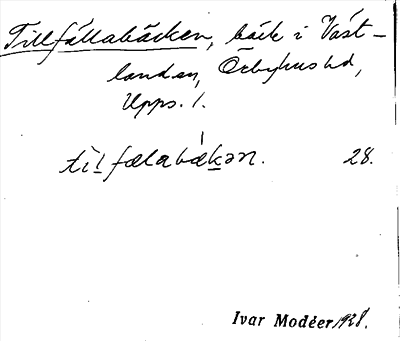 Tillfällabäcken, bäck i Väst-
landa sn, Örbyhus hd,
Upps. l.
tìlfælabækən. 28.
Ivar Modéer 1928.